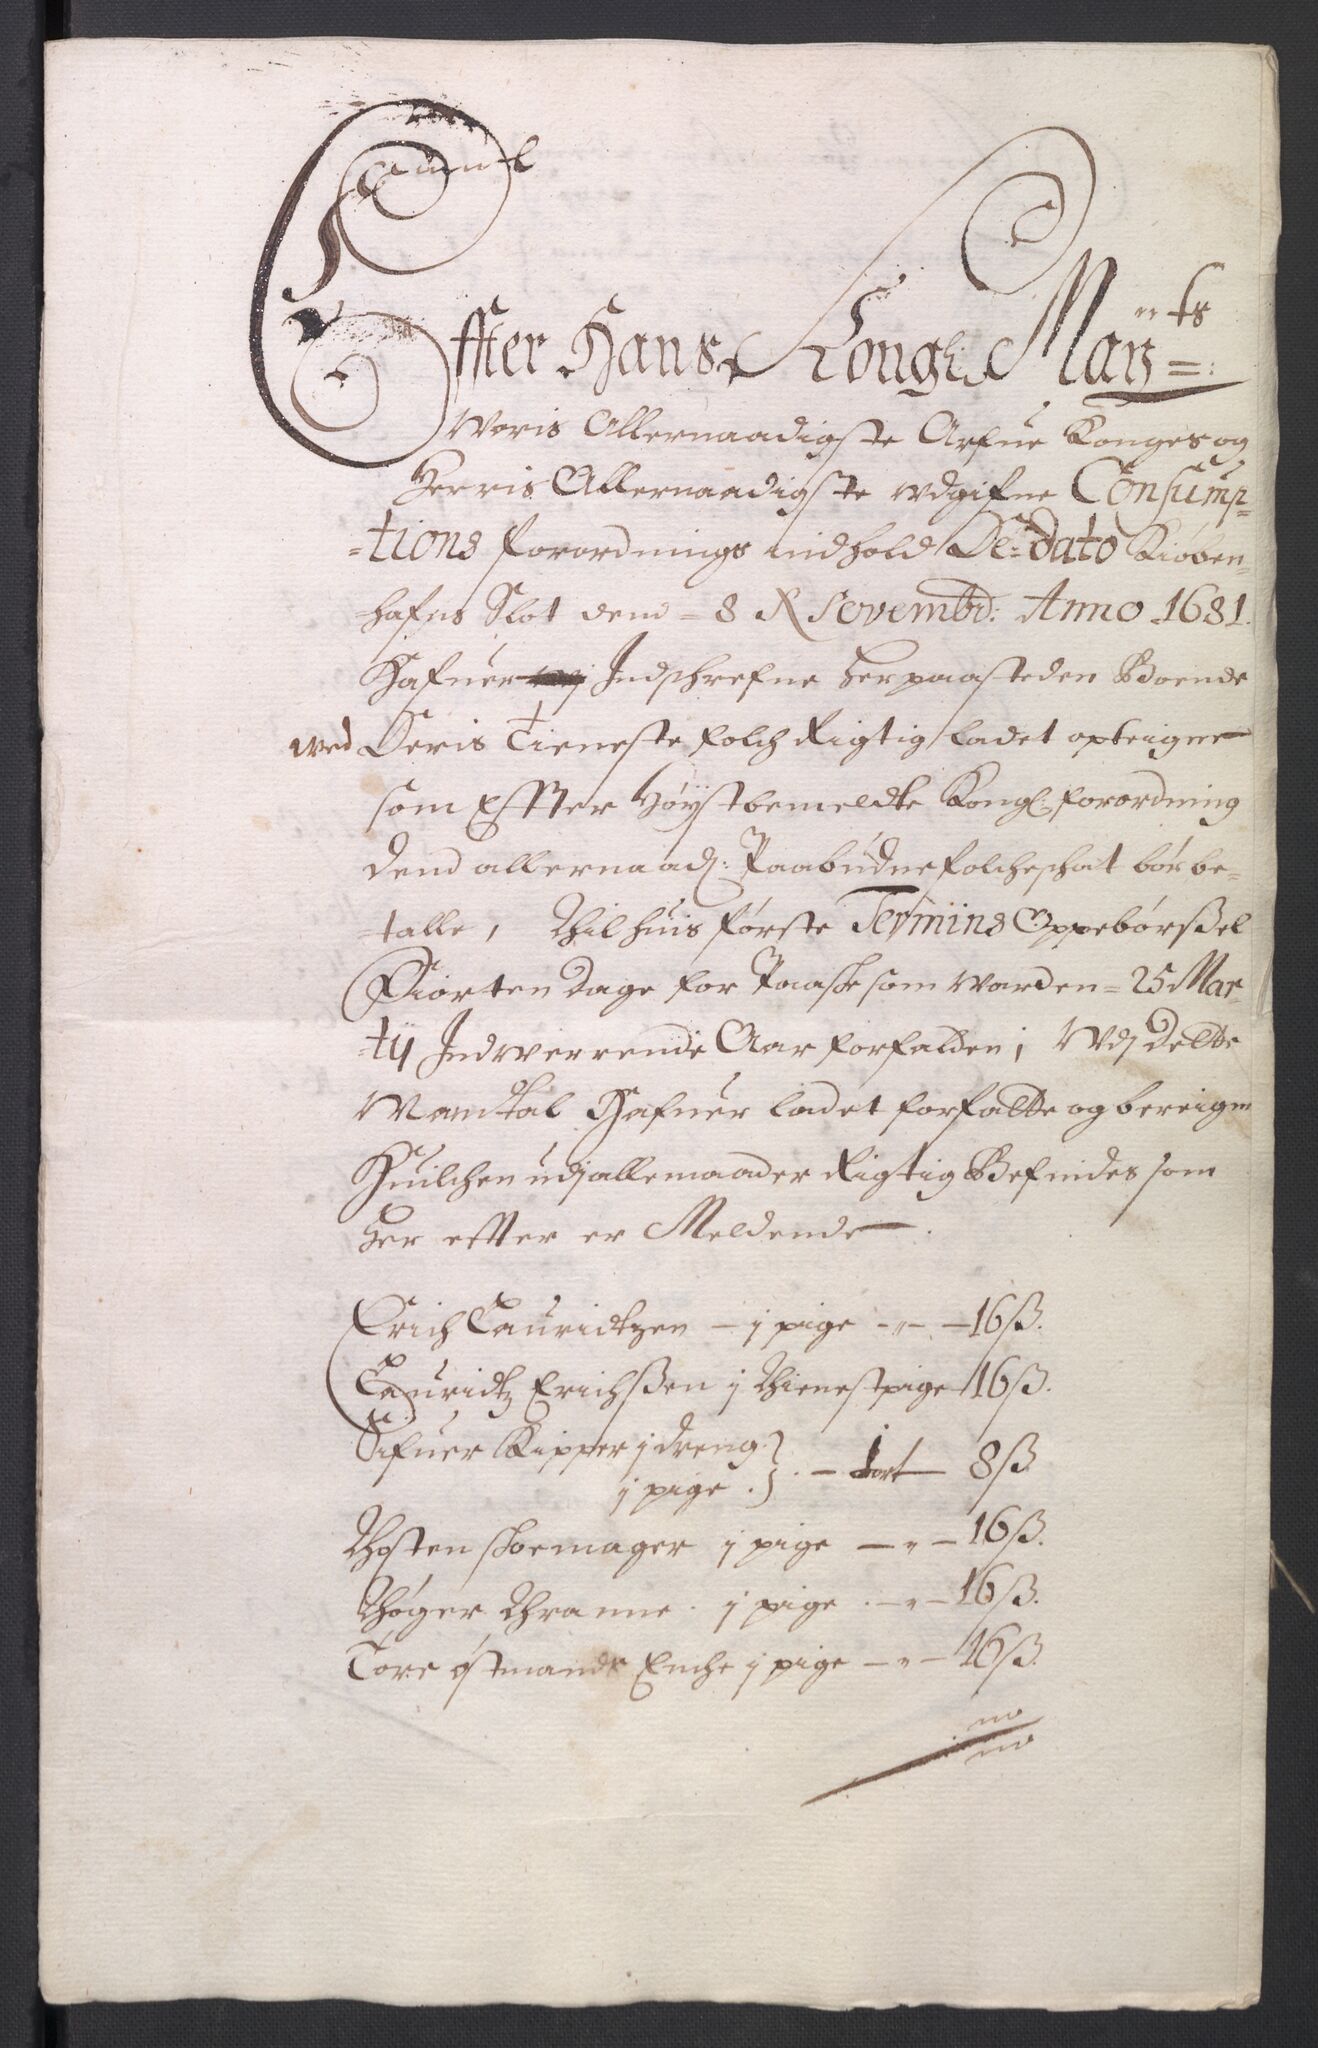 Effter Hans Kongl: May:ts
Woris Allernaadigste Arfue Konges og
Herris Allernaadigste udgifne Consump-
tions forordnings indhold De: dato Kiøben-
hafns Slot dend 8 Novembr: Anno 1681.
Hafuer Indschrefne her paa steden Boende
wed Deris Tieneste folch Rigtig ladet opteigne
som Effter Høystbemeldte Kongl: forordning
dend allernaad: Paabudne folcheschat bør be-
talle, til huis første Termins Oppebørßel
Fiorten dage for Paaske som war den 25 Mar-
tij Indwerrende Aar forfalden, Udj Dette
Mandtal Hafuer ladet forfatte og bereigne
Huilchen udj alle maader Rigtig Befindes som
her effter er Meldende.
Erich Lauridtzen – j pige – „ – 16 ß.
Lauridtz Erichßen j thienestpige 16 ß.
Sifuer Kipper j dreng
j pige – 1 ort – 8 ß
Thosten skoemager j pige – „ – 16 ß.
Thøger Thranne. j pige – „ – 16 ß.
Tore østmands Enche j pige – „ – 16 ß.